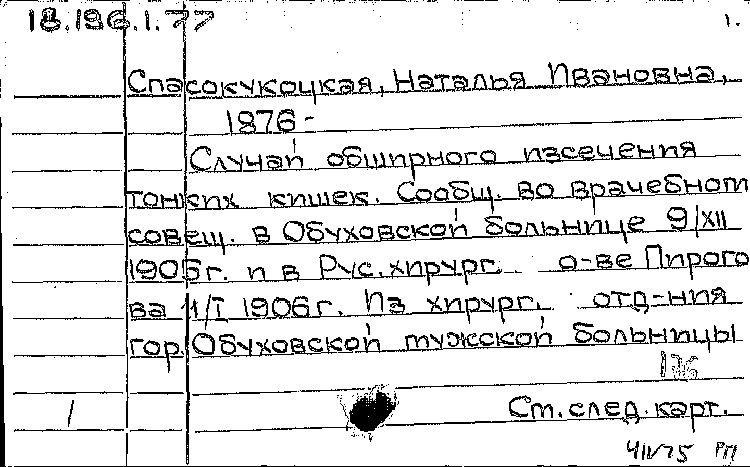 18.196.1.77
1.
Спасокукоцкая, Наталья Ивановна,
1876-
Случай обширного изсечения
тонких кишек. Сообщ. во врачебном
совещ. в Обуховской больнице 9/XII
1905г. и в Рус. хирург. о-ве Пирого
ва 11/I 1906 г. Из хирург. отд-ния
гор. Обуховской мужской больницы
176
1
См. след. карт.
РП